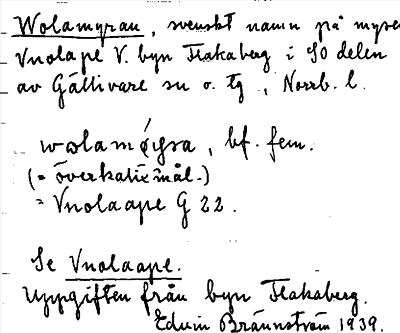 Wolamyran, svenskt namn på myren
Vuolape V. byn Flakaberg i SO delen
av Gällivare sn o. tg, Norrb. l.
wolamỹran, bf. fem.
(= överkalixmål.)
= Vuolaape G 22.
Se Vuolaape.
Uppgiften från byn Flakaberg.
Edvin Brännström 1939.